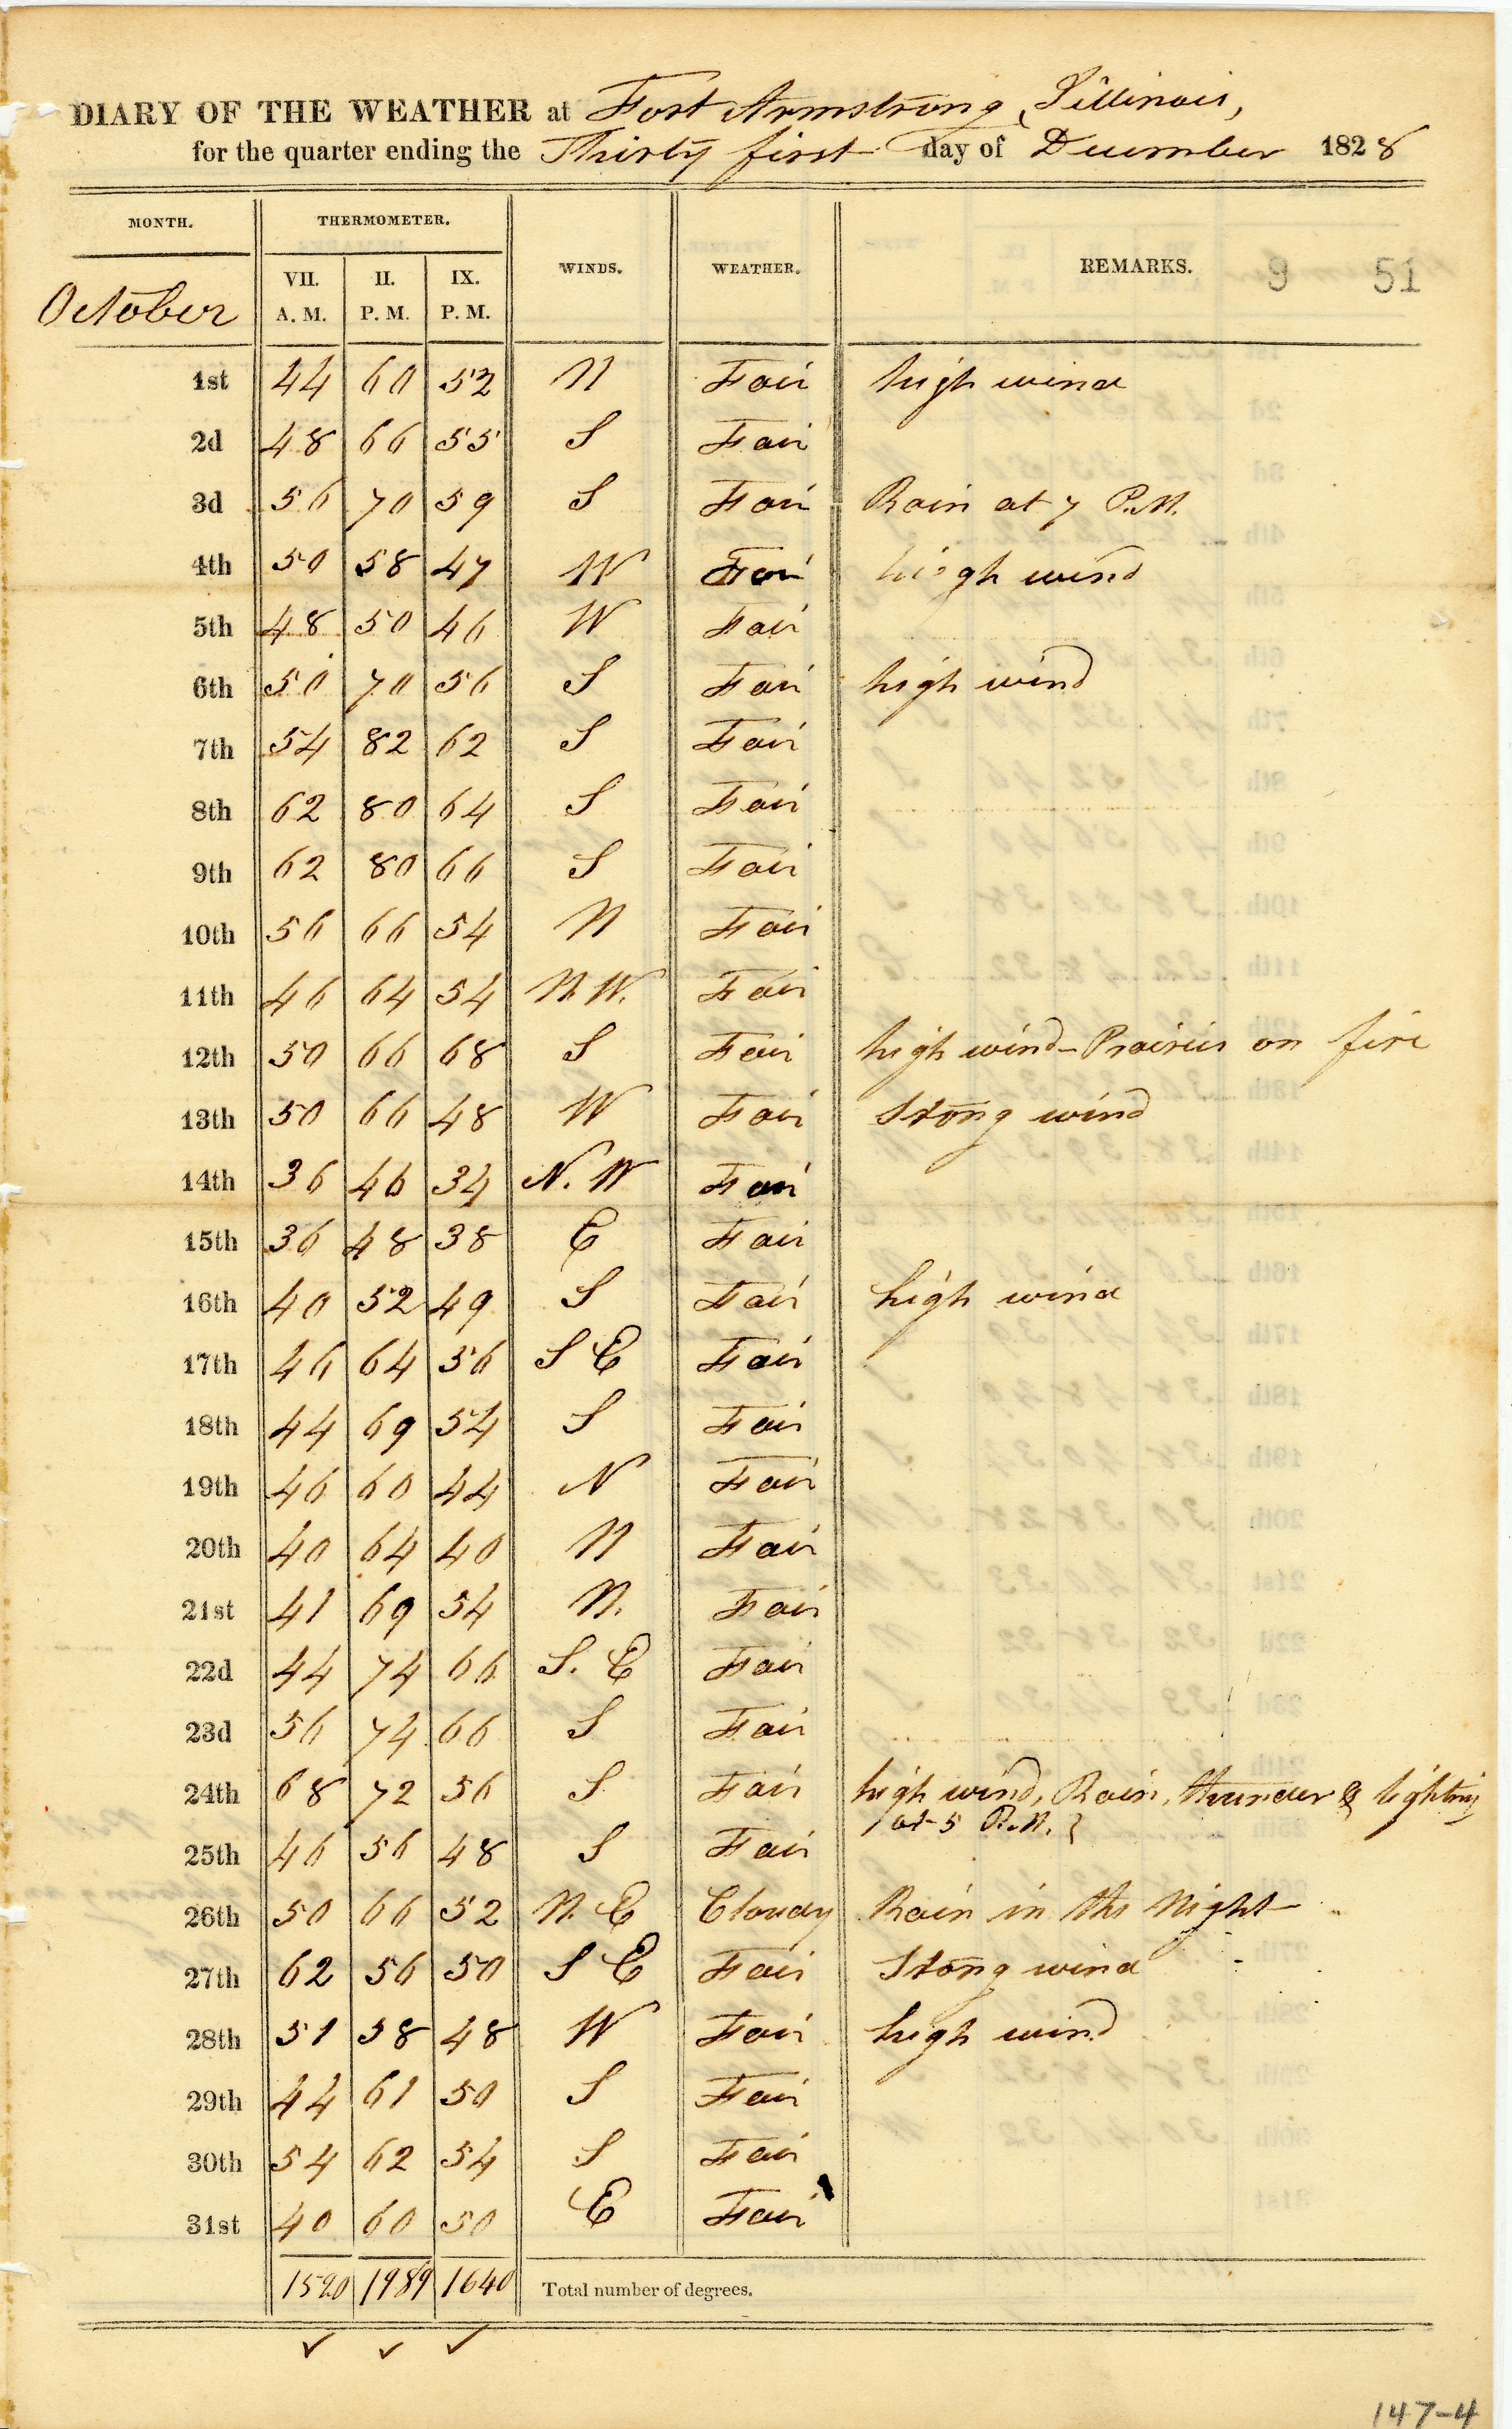 DIARY OF THE WEATHER at Fort Armstrong, Illinois,
for the quarter ending the Thirty first day of December 1828
MONTH. THERMOMETER. WINDS. WEATHER. REMARKS. 9 51
October VII. A. M. II. P. M. IX. P. M.
1st 44 60 52 N Fair high wind
2d 48 66 55 S Fair
3d 56 70 59 S Fair Rain at 7 P.M.
4th 50 58 47 W Fair high wind
5th 48 50 46 W Fair
6th 50 70 56 S Fair high wind
7th 54 82 62 S Fair
8th 62 80 64 S Fair
9th 62 80 66 S Fair
10th 56 66 54 N Fair
11th 46 64 54 N.W. Fair
12th 50 66 68 S Fair high wind - Prairies on fire
13th 50 66 48 W Fair Strong wind
14th 36 46 34 N. W Fair
15th 36 48 38 E Fair
16th 40 52 49 S Fair high wind
17th 46 64 56 S E Fair
18th 44 69 54 S Fair
19th 46 60 44 N Fair
20th 40 64 40 N Fair
21st 41 69 54 N. Fair
22d 44 74 66 S. E Fair
23d 56 74 66 S Fair
24th 68 72 56 S Fair high wind, Rain, thunder & lightnig
at 5 P.M. }
25th 46 56 48 S Fair
26th 50 66 52 N. E Cloudy Rain in the Night
27th 62 56 50 S E Fair Strong wind
28th 51 58 48 W Fair high wind
29th 44 61 50 S Fair
30th 54 62 54 S Fair
31st 40 60 50 E Fair
1520 1989 1640 Total number of degrees.
147-4